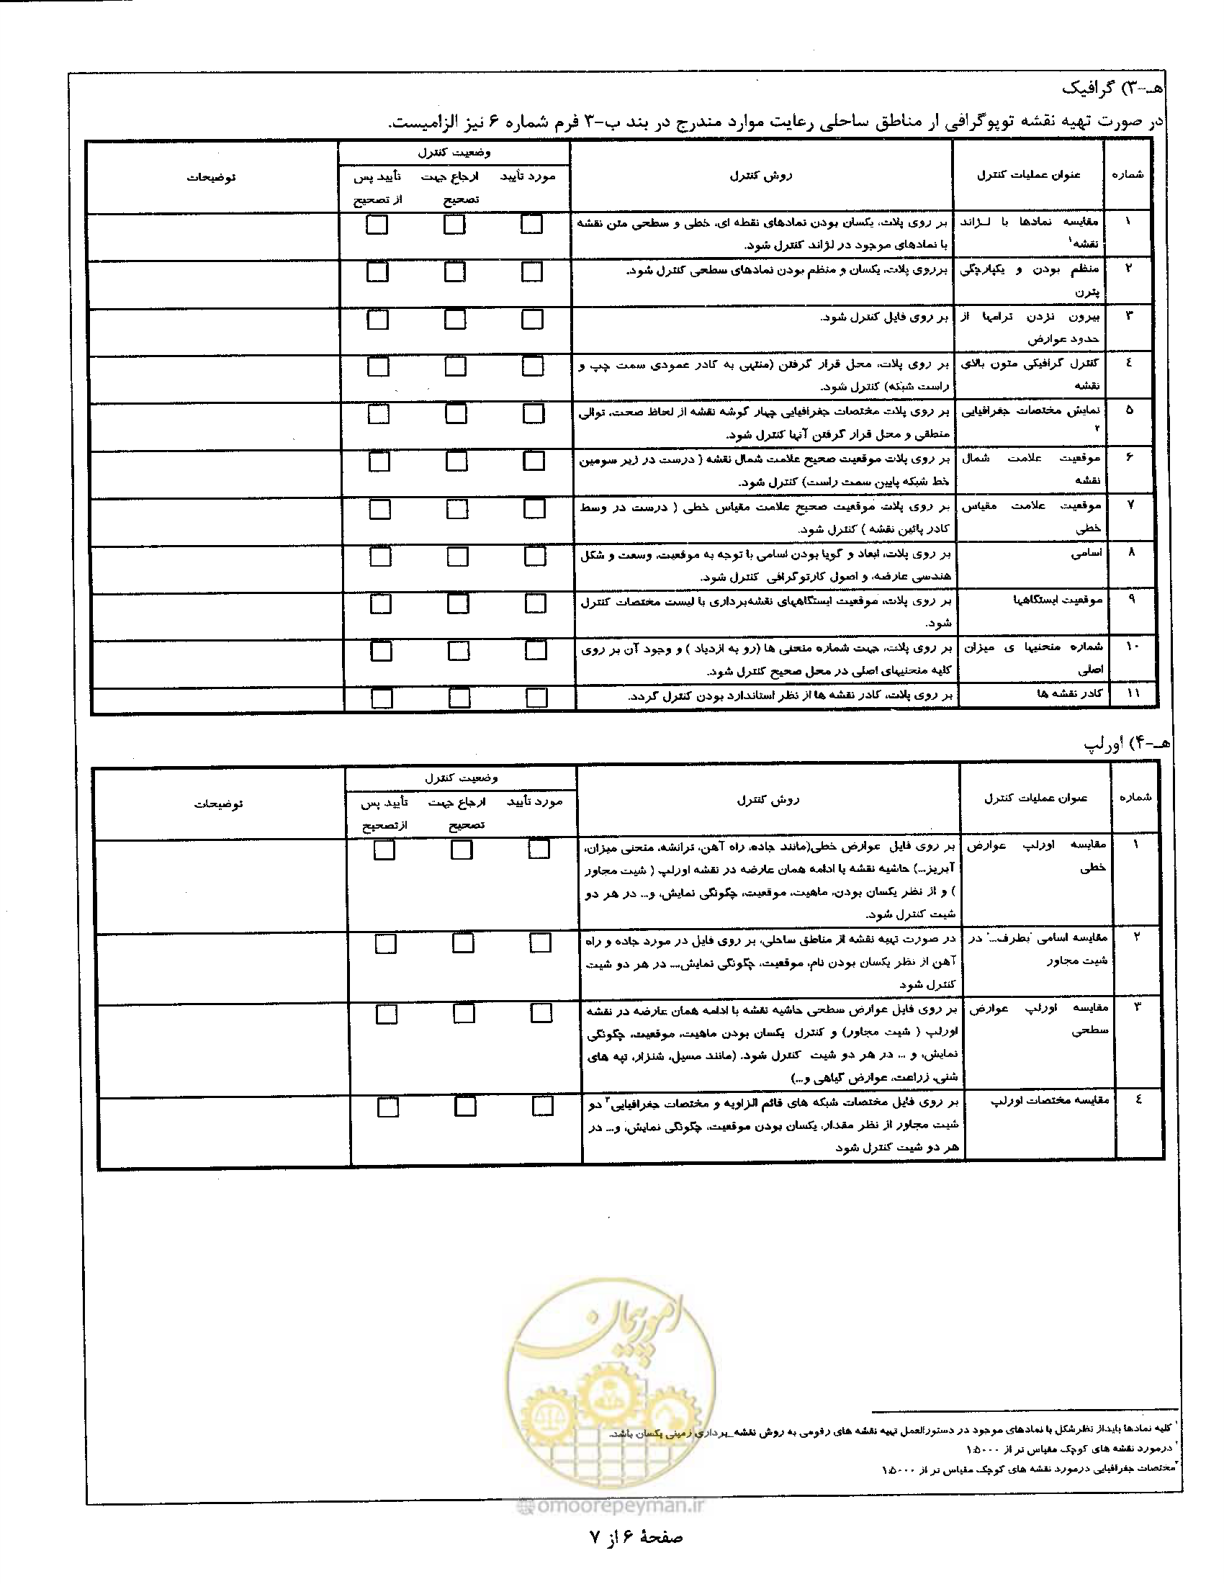 هـ-۳) گرافیک
در صورت تهیه نقشه توپوگرافی ار مناطق ساحلی رعایت موارد مندرج در بند ب-۳ فرم شماره ۶ نیز الزامیست.
شماره
عنوان عملیات کنترل
روش کنترل
وضعیت کنترل
توضیحات
مورد تأیید
ارجاع جهت
تصحیح
تأیید پس
از تصحیح
۱
مقایسه نمادها با لژاند
نقشه۱
بر روی پلات، یکسان بودن نمادهای نقطه ای، خطی و سطحی متن نقشه
با نمادهای موجود در لژاند کنترل شود.
۲
منظم بودن و یکپارچگی
پترن
برروی پلات، یکسان و منظم بودن نمادهای سطحی کنترل شود.
۳
بیرون نزدن ترامها از
حدود عوارض
بر روی فایل کنترل شود.
٤
کنترل گرافیکی متون بالای
نقشه
بر روی پلات، محل قرار گرفتن (منتهی به کادر عمودی سمت چپ و
راست شبکه) کنترل شود.
۵
نمایش مختصات جغرافیایی
۲
بر روی پلات مختصات جغرافیایی چهار گوشه نقشه از لحاظ صحت، توالی
منطقی و محل قرار گرفتن آنها کنترل شود.
۶
موقعیت علامت شمال
نقشه
بر روی پلات موقعیت صحیح علامت شمال نقشه ( درست در زیر سومین
خط شبکه پایین سمت راست) کنترل شود.
۷
موقعیت علامت مقیاس
خطی
بر روی پلات موقعیت صحیح علامت مقیاس خطی ( درست در وسط
کادر پائین نقشه ) کنترل شود.
۸
اسامی
بر روی پلات، ابعاد و گویا بودن اسامی با توجه به موقعیت، وسعت و شکل
هندسی عارضه، و اصول کارتوگرافی کنترل شود.
۹
موقعیت ایستگاهها
بر روی پلات، موقعیت ایستگاههای نقشه‌برداری با لیست مختصات کنترل
شود.
۱۰
شماره منحنیها ی میزان
اصلی
بر روی پلات، جهت شماره منحنی ها (رو به ازدیاد ) و وجود آن بر روی
کلیه منحنیهای اصلی در محل صحیح کنترل شود.
۱۱
کادر نقشه ها
بر روی پلات، کادر نقشه ها از نظر استاندارد بودن کنترل گردد.
هـ-۴) اورلپ
شماره
عنوان عملیات کنترل
روش کنترل
وضعیت کنترل
توضیحات
مورد تأیید
ارجاع جهت
تصحیح
تأیید پس
ازتصحیح
۱
مقایسه اورلپ عوارض
خطی
بر روی فایل عوارض خطی(مانند جاده، راه آهن، ترانشه، منحنی میزان،
آبریز...) حاشیه نقشه با ادامه همان عارضه در نقشه اورلپ ( شیت مجاور
) و از نظر یکسان بودن، ماهیت، موقعیت، چگونگی نمایش، و... در هر دو
شیت کنترل شود.
۲
مقایسه اسامی "بطرف..." در
شیت مجاور
در صورت تهیه نقشه از مناطق ساحلی، بر روی فایل در مورد جاده و راه
آهن از نظر یکسان بودن نام، موقعیت، چگونگی نمایش،... در هر دو شیت
کنترل شود
۳
مقایسه اورلپ عوارض
سطحی
بر روی فایل عوارض سطحی حاشیه نقشه با ادامه همان عارضه در نقشه
اورلپ ( شیت مجاور) و کنترل یکسان بودن ماهیت، موقعیت، چگونگی
نمایش، و ... در هر دو شیت کنترل شود. (مانند مسیل، شنزار، تپه های
شنی، زراعت، عوارض گیاهی و...)
٤
مقایسه مختصات اورلپ
بر روی فایل مختصات شبکه های قائم الزاویه و مختصات جغرافیایی۳ دو
شیت مجاور از نظر مقدار، یکسان بودن موقعیت، چگونگی نمایش، و... در
هر دو شیت کنترل شود
امور پیمان
۱ کلیه نمادها بایداز نظرشکل با نمادهای موجود در دستورالعمل تهیه نقشه های رقومی به روش نقشه_برداری زمینی یکسان باشد.
۲ درمورد نقشه های کوچک مقیاس تر از ۱:۵۰۰۰
۳مختصات جغرافیایی درمورد نقشه های کوچک مقیاس تر از ۱:۵۰۰۰
@omoorepeyman.ir
صفحهٔ ۶ از ۷